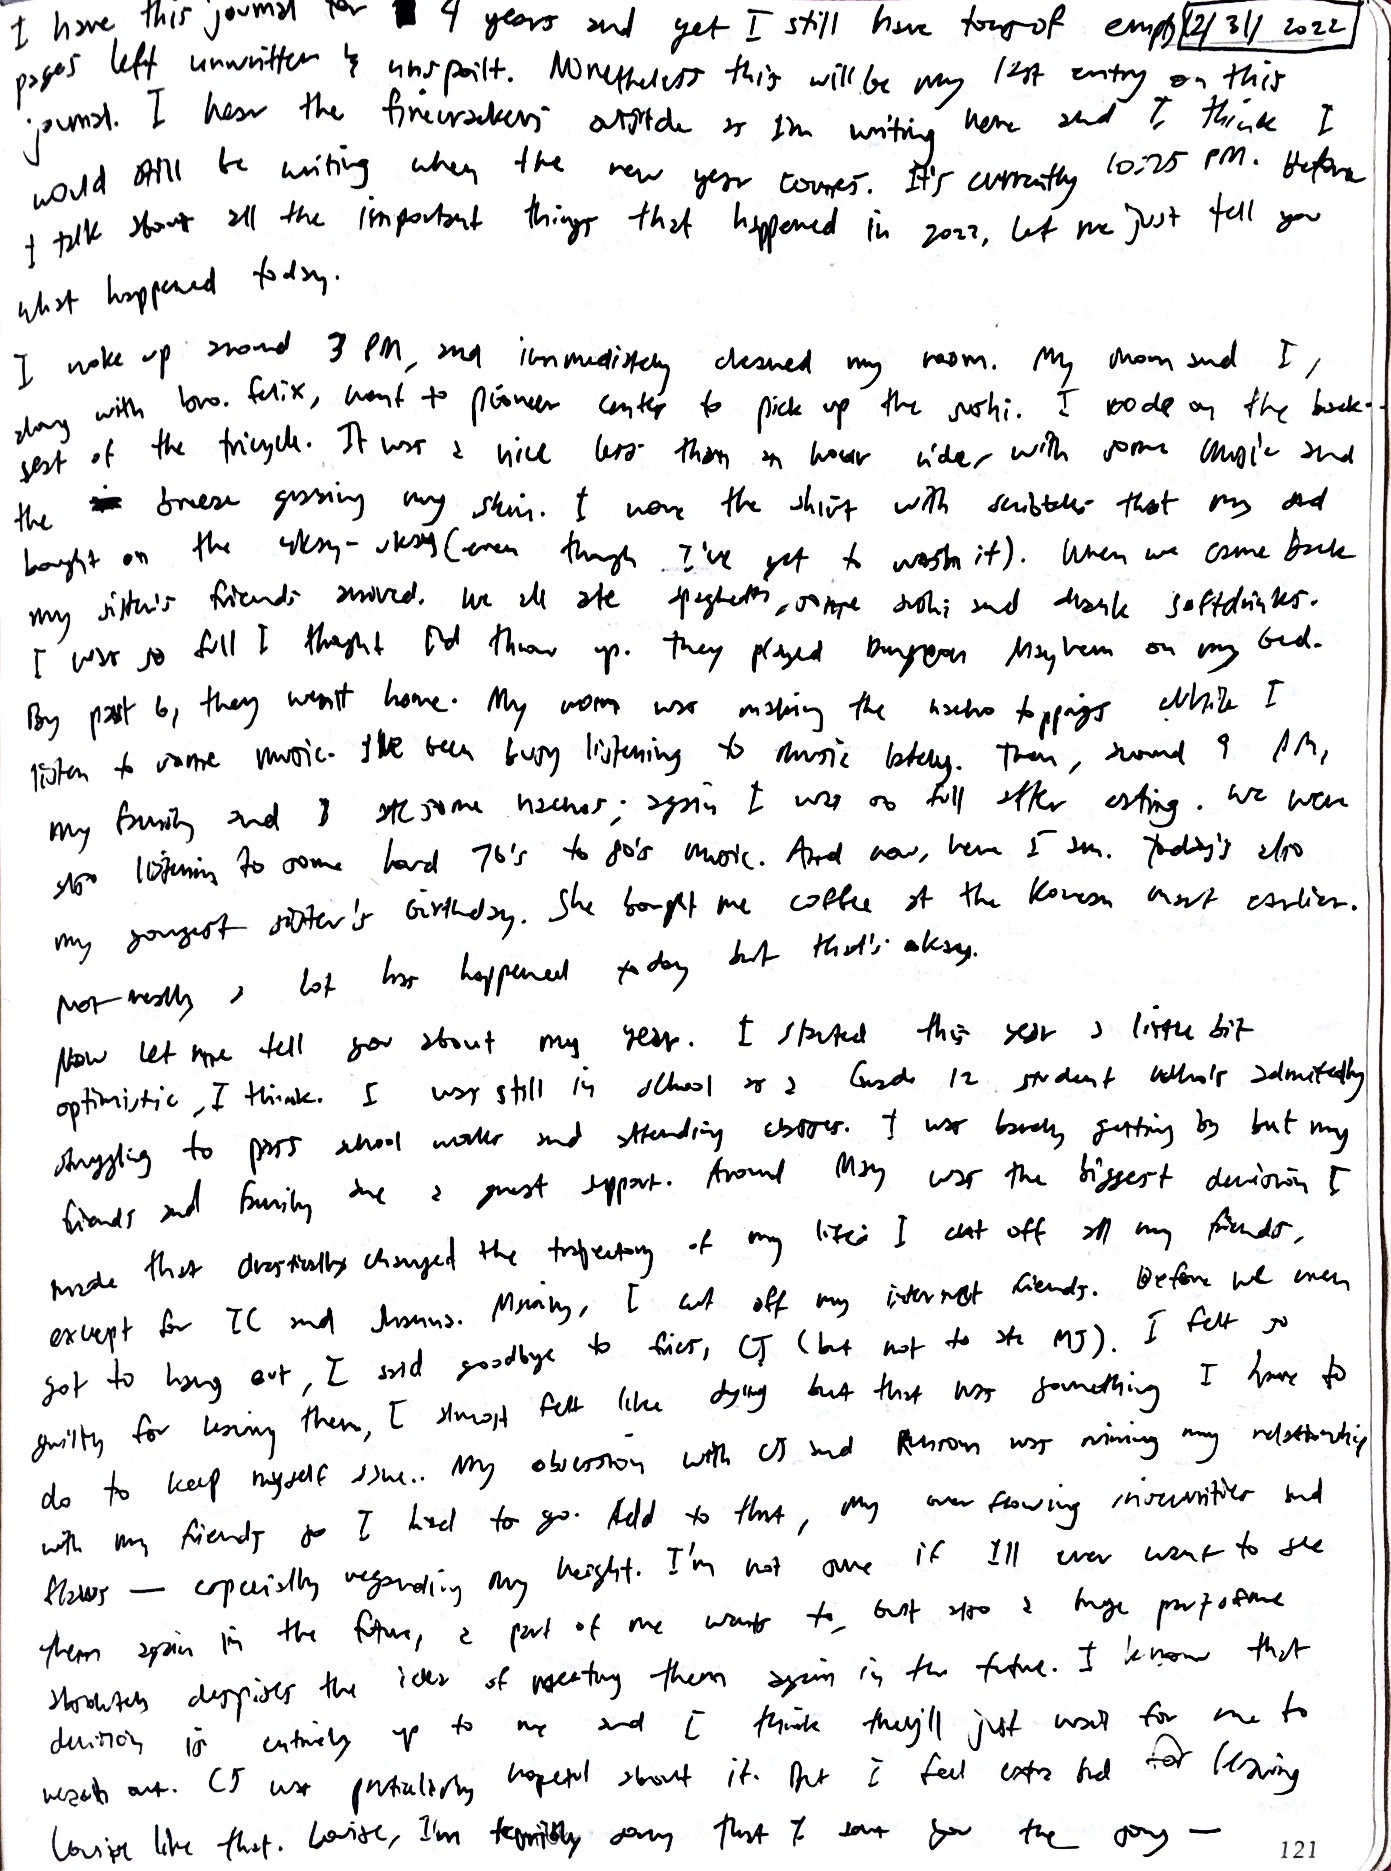 I have this journal for 4 years and yet I still have tons of empty 12/31/2022
pages left unwritten & unspoilt. Nonetheless this will be my last entry on this
journal. I hear the firecrackers outside as I'm writing here and I think I
would still be writing when the new year comes. It's currently 10:25 PM. Before
I talk about all the important things that happened in 2022, let me just tell you
what happened today.
I woke up around 3 PM, and immediately cleaned my room. My mom and I,
along with bro. Felix, went to pioneer center to pick up the sushi. I rode on the back-
seat of the tricycle. It was a nice less than an hour ride, with some music and
the breeze grazing my skin. I wore the shirt with that my dad
bought on the ukay-ukay (even though I've yet to wash it). When we came back
my sister's friends arrived. We all ate spaghetti, some sushi and drank softdrinks.
I was so full I thought I'd throw up. They played Dungeon Mayhem on my bed.
By past 6, they went home. My mom was making the nacho toppings while I
listen to some music. I've been busy listening to music lately. Then, around 9 PM,
my family and I ate some nachos; again I was so full after eating. We were
also listening to some hard 70's to 80's music. And now, here I am. Today's also
my youngest sister's birthday. She bought me coffee at the Korean mart earlier.
Not really a lot has happened today but that's okay.
Now let me tell you about my year. I started this year a little bit
optimistic, I think. I was still in school as a Grade 12 student who's admittedly
struggling to pass school works and attending classes. I was barely getting by but my
friends and family are a great support. Around May was the biggest decision I
made that drastically changed the trajectory of my life: I cut off all my friends,
except for IC and . Mainly, I cut off my internet friends. Before we even
got to hang out, I said goodbye to , CJ (but not to ate MJ). I felt so
guilty for leaving them, I almost felt like dying but that was something I have to
do to keep myself sane.. My obsession with CJ and was ruining my relationship
with my friends so I had to go. Add to that, my overflowing insecurities and
flaws — especially regarding my height. I'm not sure if I'll ever want to see
them again in the future, a part of me wants to, but also a huge part of me
absolutely despises the idea of meeting them again in the future. I know that
decision is entirely up to me and I think they'll just wait for me to
reach out. CJ was particularly hopeful about it. But I feel extra bad for leaving
Louise like that. Louise, I'm terribly sorry that I sent you the song —
121